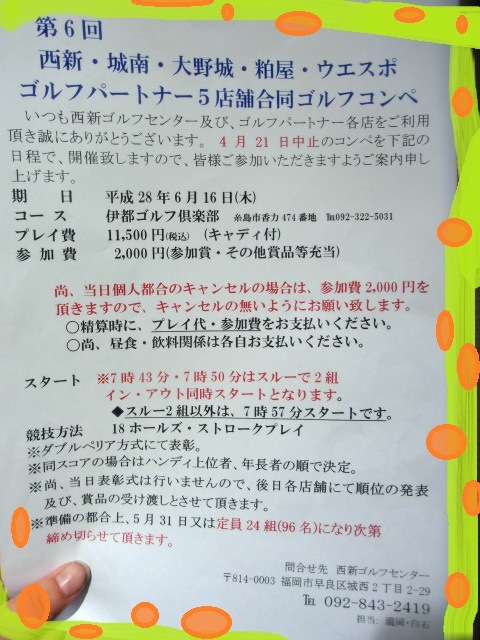 第６回
西新・城南・大野城・粕屋・ウエスポ
ゴルフパートナー５店舗合同ゴルフコンペ
いつも西新ゴルフセンター及び、ゴルフパートナー各店をご利用
頂き誠にありがとうございます。４月２１日中止のコンペを下記の
日程で、開催致しますので、皆様ご参加いただきますようご案内申し
上げます。
期　日　平成28年6月16日(木)
コース　伊都ゴルフ倶楽部　糸島市香力474番地　℡092-322-5031
プレイ費　11,500円(税込)　(キャディ付)
参加費　2,000円(参加賞・その他賞品等充当)
尚、当日個人都合のキャンセルの場合は、参加費2,000円を
頂きますので、キャンセルの無いようにお願い致します。
○精算時に、プレイ代・参加費をお支払いください。
○尚、昼食・飲料関係は各自お支払いください。
スタート　※7時43分・7時50分はスルーで2組
イン・アウト同時スタートとなります。
◆スルー2組以外は、7時57分スタートです。
競技方法　18ホールズ・ストロークプレイ
※ダブルペリア方式にて表彰。
※同スコアの場合はハンディ上位者、年長者の順で決定。
※尚、当日表彰式は行いませんので、後日各店舗にて順位の発表
及び、賞品の受け渡しとさせて頂きます。
※準備の都合上、5月31日又は定員24組(96名)になり次第
締め切らせて頂きます。
問合せ先　西新ゴルフセンター
〒814-0003　福岡市早良区城西2丁目2-29
℡ 092-843-2419
担当：瀧岡・白石